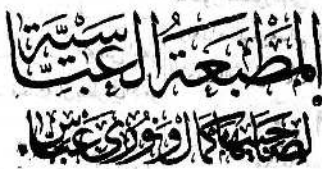 المَطْبَعَةُ العَبَّاسِيَّة
لصاحبيها كمال وفوزي عباس